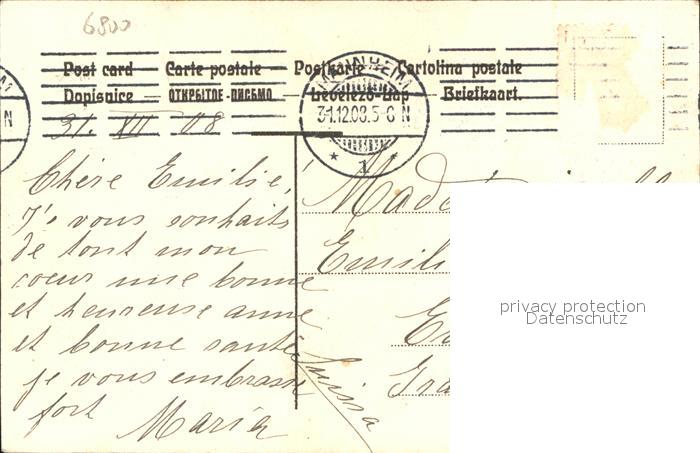 6800
Post card Carte postale Postkarte Cartolina postale
Dopisnice — ОТКРЫТОЕ-ПИСЬМО — Levelező-Lap Briefkaart.
MANNHEIM
31.12.08.5-6 N
* 1 *
N
31. XII 08
Chère Emilie,
Je vous souhaits
de tout mon
coeur une bonne
et heureuse anne
et bonne santé
je vous embrasse
fort
Maria
Suissa
Emili
Gra
privacy protection
Datenschutz